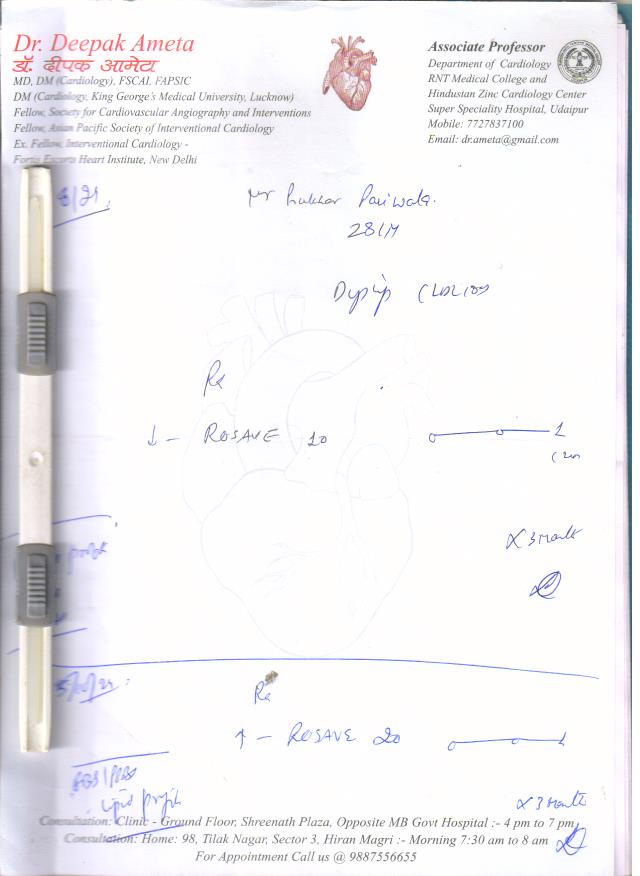 Dr. Deepak Ameta
डॉ. दीपक आमेटा
MD, DM (Cardiology), FSCAI, FAPSIC
DM (Cardiology, King George's Medical University, Lucknow)
Fellow, Society for Cardiovascular Angiography and Interventions
Fellow, Asian Pacific Society of Interventional Cardiology
Ex. Fellow, Interventional Cardiology -
Fortis Escorts Heart Institute, New Delhi
Associate Professor
Department of Cardiology
RNT Medical College and
Hindustan Zinc Cardiology Center
Super Speciality Hospital, Udaipur
Mobile: 7727837100
Email: dr.ameta@gmail.com
Mr
28/M
Rx
↓ - ROSAVE
x 3 Month
Rx
↑ - ROSAVE 20
lipid profile
x 3 Month
Consultation: Clinic - Ground Floor, Shreenath Plaza, Opposite MB Govt Hospital :- 4 pm to 7 pm
Consultation: Home: 98, Tilak Nagar, Sector 3, Hiran Magri :- Morning 7:30 am to 8 am
For Appointment Call us @ 9887556655